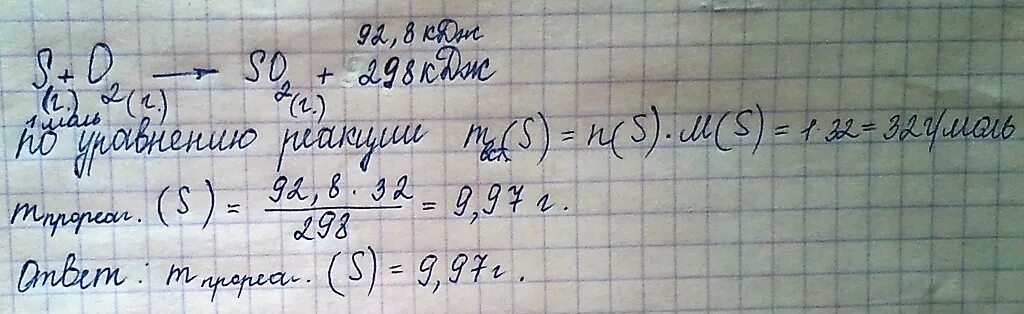 92,8 кДж
S + O2 → SO2 + 298 кДж
(г.) 2(г.) 2(г.)
1 моль
по уравнению реакции m вст. (S) = n(S) · M(S) = 1·32 = 32 г/моль
m прореаг. (S) = 92,8 · 32 / 298 = 9,97 г.
Ответ: m прореаг. (S) = 9,97 г.